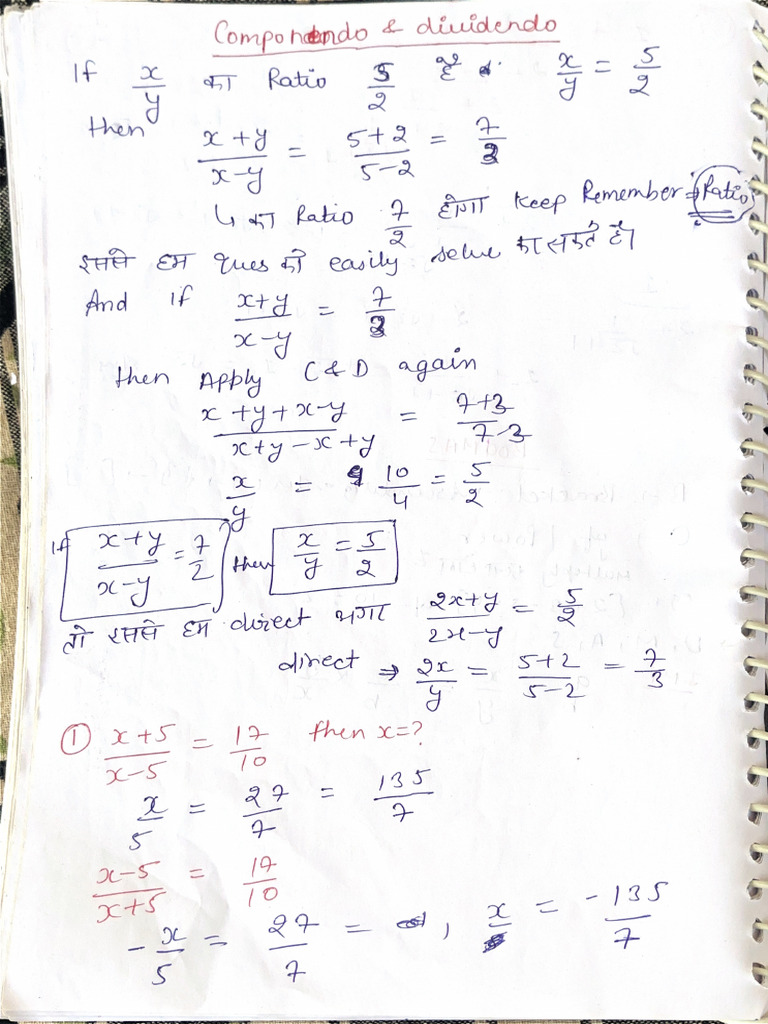 Componendo & dividendo
If x/y का Ratio 5/2 है x/y = 5/2
then (x+y)/(x-y) = (5+2)/(5-2) = 7/3
↳ का Ratio 7/2 होगा Keep Remember → Ratio
इससे हम Ques को easily solve का सकते है।
And if (x+y)/(x-y) = 7/3
then Apply C & D again
(x+y+x-y)/(x+y-x+y) = (7+3)/(7-3)
x/y = 10/4 = 5/2
If (x+y)/(x-y) = 7/2 then x/y = 5/2
तो इससे हम direct अगर (2x+y)/(2x-y) = 5/2
direct ⇒ 2x/y = (5+2)/(5-2) = 7/3
① (x+5)/(x-5) = 17/10 then x=?
x/5 = 27/7 = 135/7
(x-5)/(x+5) = 17/10
-x/5 = 27/7 = , x = -135/7